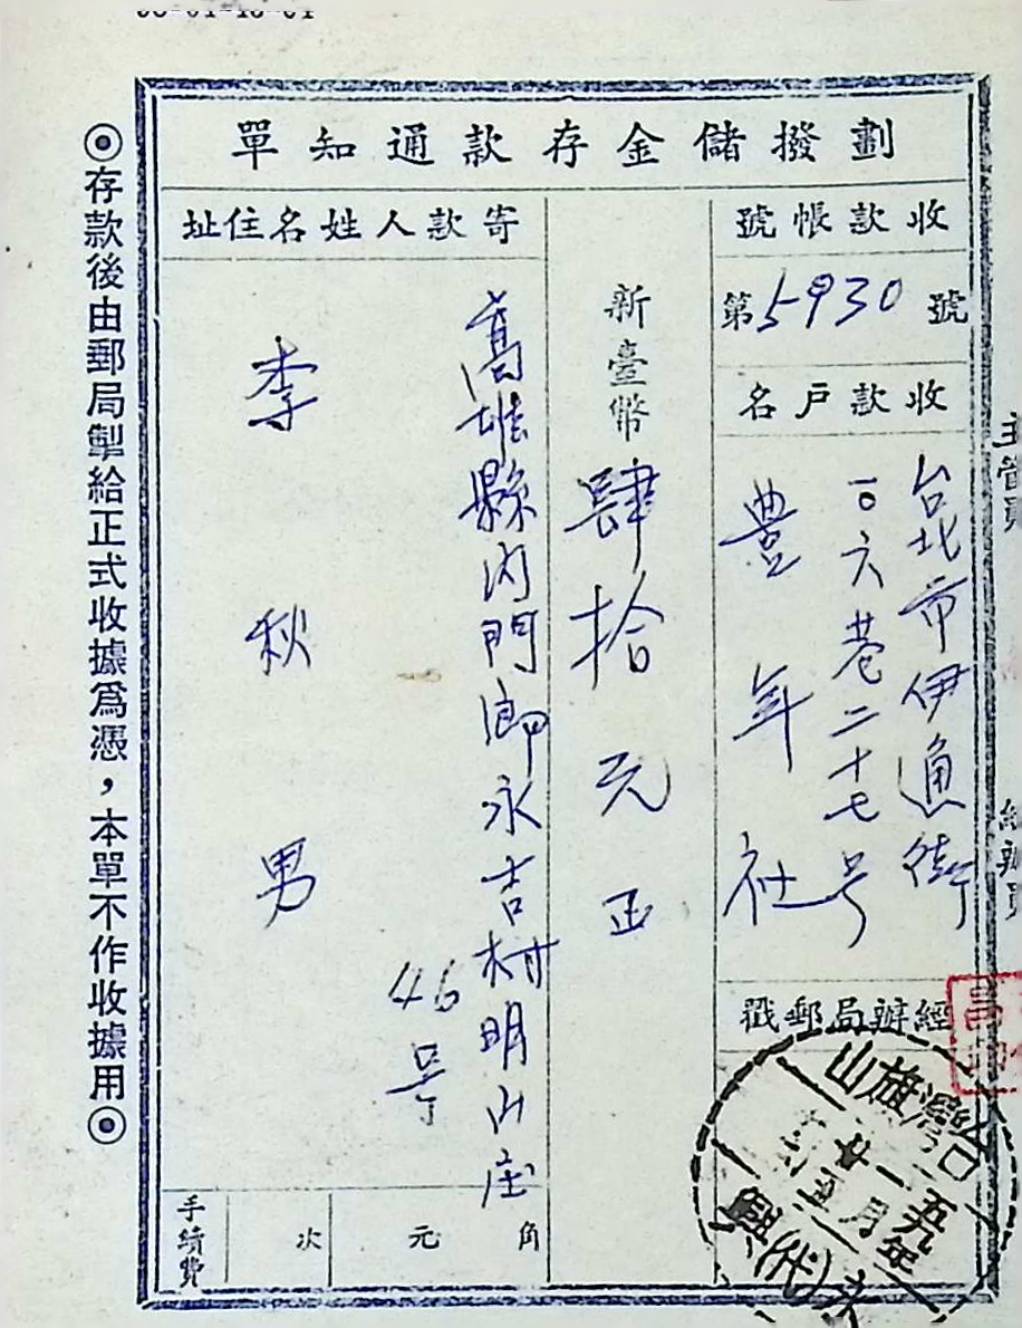 劃撥儲金存款通知單
收款帳號
第5930號
收款戶名
台北市伊通街
一〇六巷二十七号
豐年社
經辦局郵戳
新臺幣肆拾元正
寄款人姓名住址
高雄縣內門鄉永吉村明山庄
46号
李秋男
手續費
次
元
角
◉存款後由郵局掣給正式收據為憑，本單不作收據用◉
台灣旗山
五九年
一月
永興(代)
主管員
經辦員